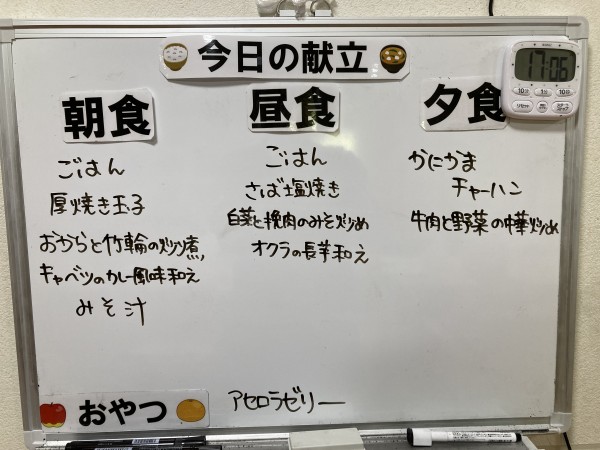 今日の献立
17:06
朝食
ごはん
厚焼き玉子
おからと竹輪の炒り煮
キャベツのカレー風味和え
みそ汁
昼食
ごはん
さば塩焼き
白菜と挽肉のみそ炒め
オクラの長芋和え
夕食
かにかま
チャーハン
牛肉と野菜の中華炒め
おやつ
アセロラゼリー